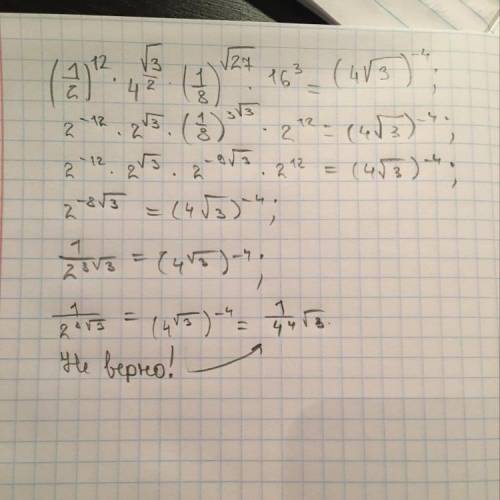 (1/2)^12 · 4^(√3/2) · (1/8)^√27 · 16^3 = (4√3)^-4;
2^-12 · 2^√3 · (1/8)^3√3 · 2^12 = (4√3)^-4;
2^-12 · 2^√3 · 2^-9√3 · 2^12 = (4√3)^-4;
2^-8√3 = (4√3)^-4;
1/2^8√3 = (4^√3)^-4;
1/2^8√3 = (4^√3)^-4 = 1/4^4√3.
Не верно!